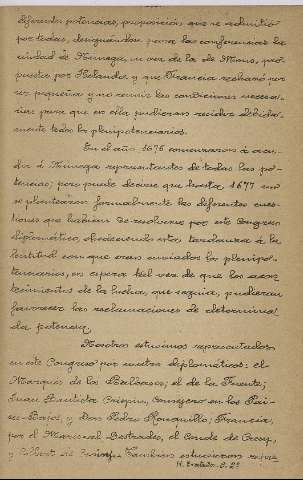 diferentes potencias, proposición que se admitió
por todas, designándose para las conferencias la
ciudad de Nimega, en vez de la de Mons, pro-
puesta por Holanda y que Francia rechazó por
ser pequeña y no reunir las condiciones necesa-
rias para que en ella pudieran residir debida-
mente todos los plenipotenciarios.
En el año 1676 comenzaron á acu-
dir á Nimega representantes de todas las po-
tencias; pero puede decirse que hasta 1677 no
se plantearon formalmente las diferentes cues-
tiones que habían de resolverse por este Congreso
diplomático, obedeciendo esta tardanza á la
lentitud con que eran enviados los plenipo-
tenciarios, en espera tal vez de que los acon-
tecimientos de la lucha, que seguía, pudieran
favorecer las reclamaciones de determina-
da potencia.
Nosotros estuvimos representados
en este Congreso por cuatro diplomáticos: el
Marqués de los Balbases; el de la Fuente;
Juan Bautista Crispin, Consejero en los Paí-
ses-Bajos, y Don Pedro Ronquillo; Francia,
por el Mariscal Destrades, el Conde de Croisy,
y también estuvieron repre-